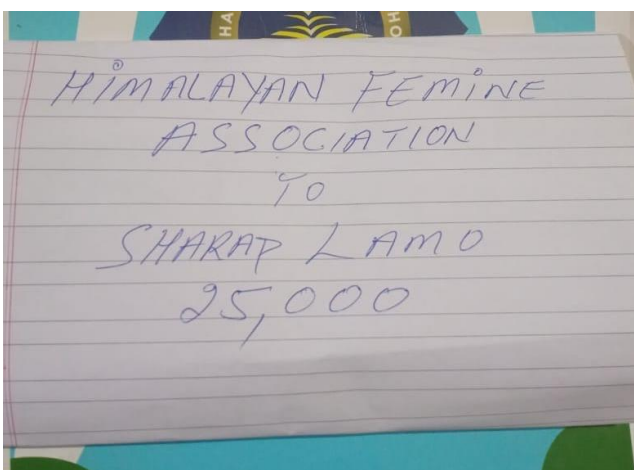 HA
OH
HIMALAYAN FEMINE
ASSOCIATION
TO
SHARAP LAMO
25,000